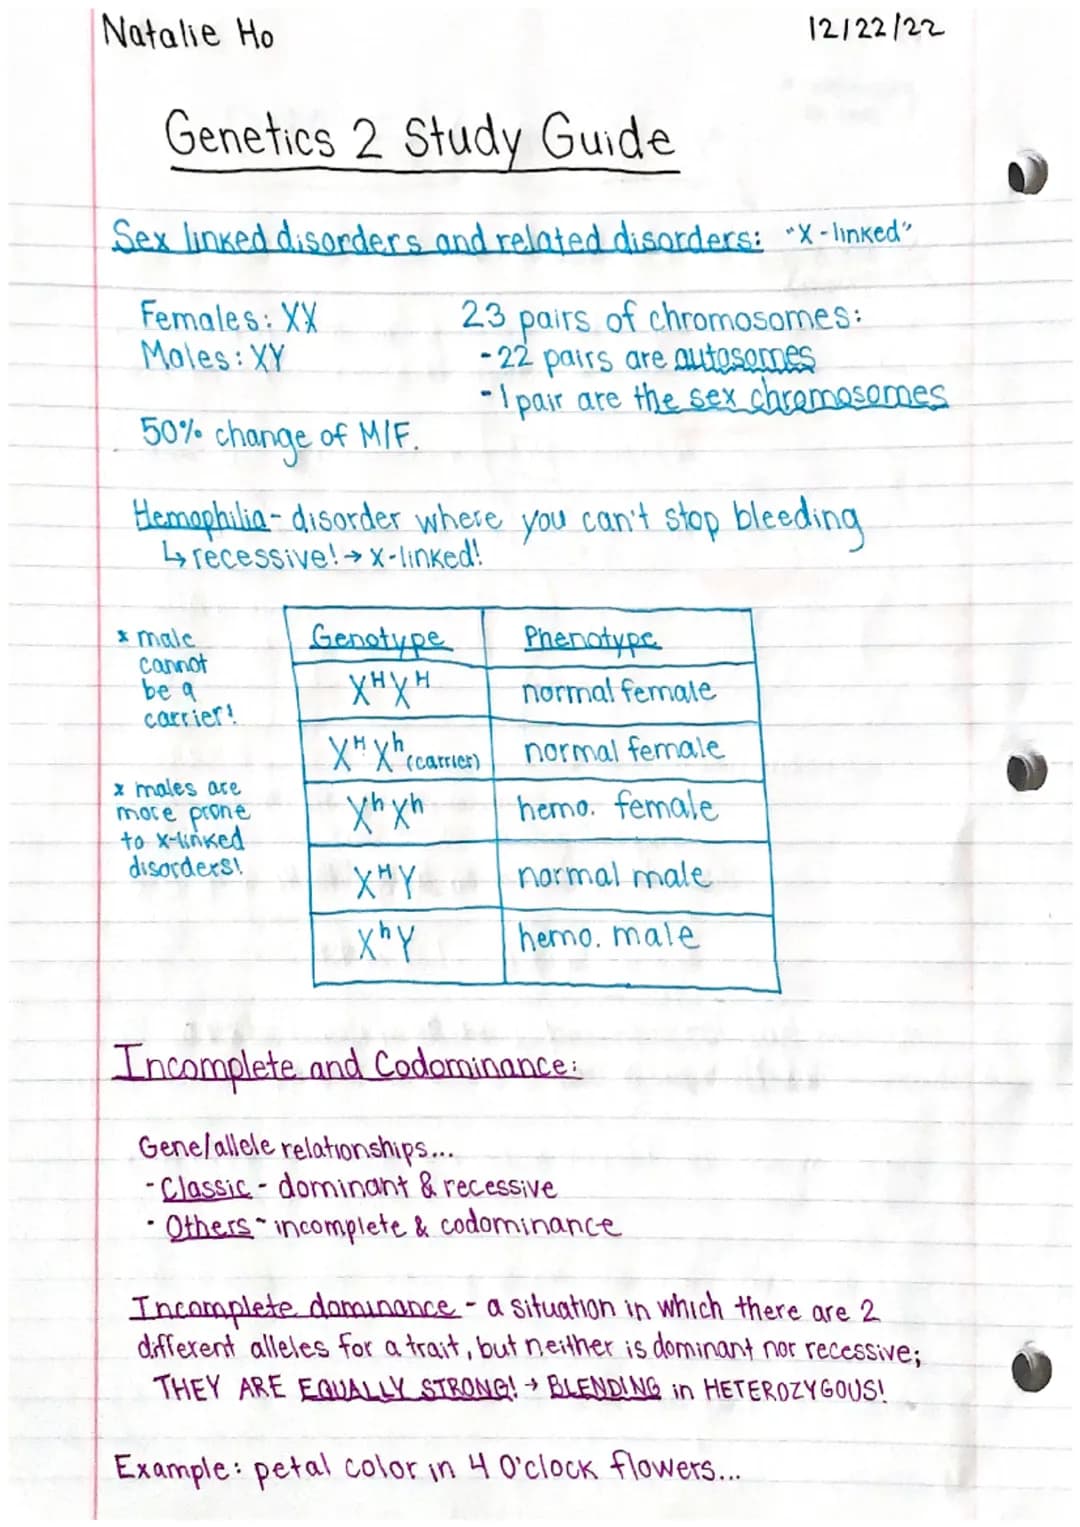 Natalie Ho
12/22/22
Genetics 2 Study Guide
Sex linked disorders and related disorders: "X-linked"
Females: XX
Males: XY
50% change of M/F.
23 pairs of chromosomes:
-22 pairs are autosomes
-1 pair are the sex chromosomes
Hemophilia- disorder where you can't stop bleeding
↳ recessive! → x-linked!
* male
cannot
be a
carrier!
* males are
more prone
to x-linked
disorders!
Genotype Phenotype
XᴴXᴴ normal female
XᴴXʰ (carrier) normal female
XʰXʰ hemo. female
XᴴY normal male
XʰY hemo. male
Incomplete and Codominance:
Gene/allele relationships...
- Classic - dominant & recessive
- Others - incomplete & codominance
Incomplete dominance - a situation in which there are 2
different alleles for a trait, but neither is dominant nor recessive;
THEY ARE EQUALLY STRONG! → BLENDING in HETEROZYGOUS!
Example: petal color in 4 O'clock flowers...